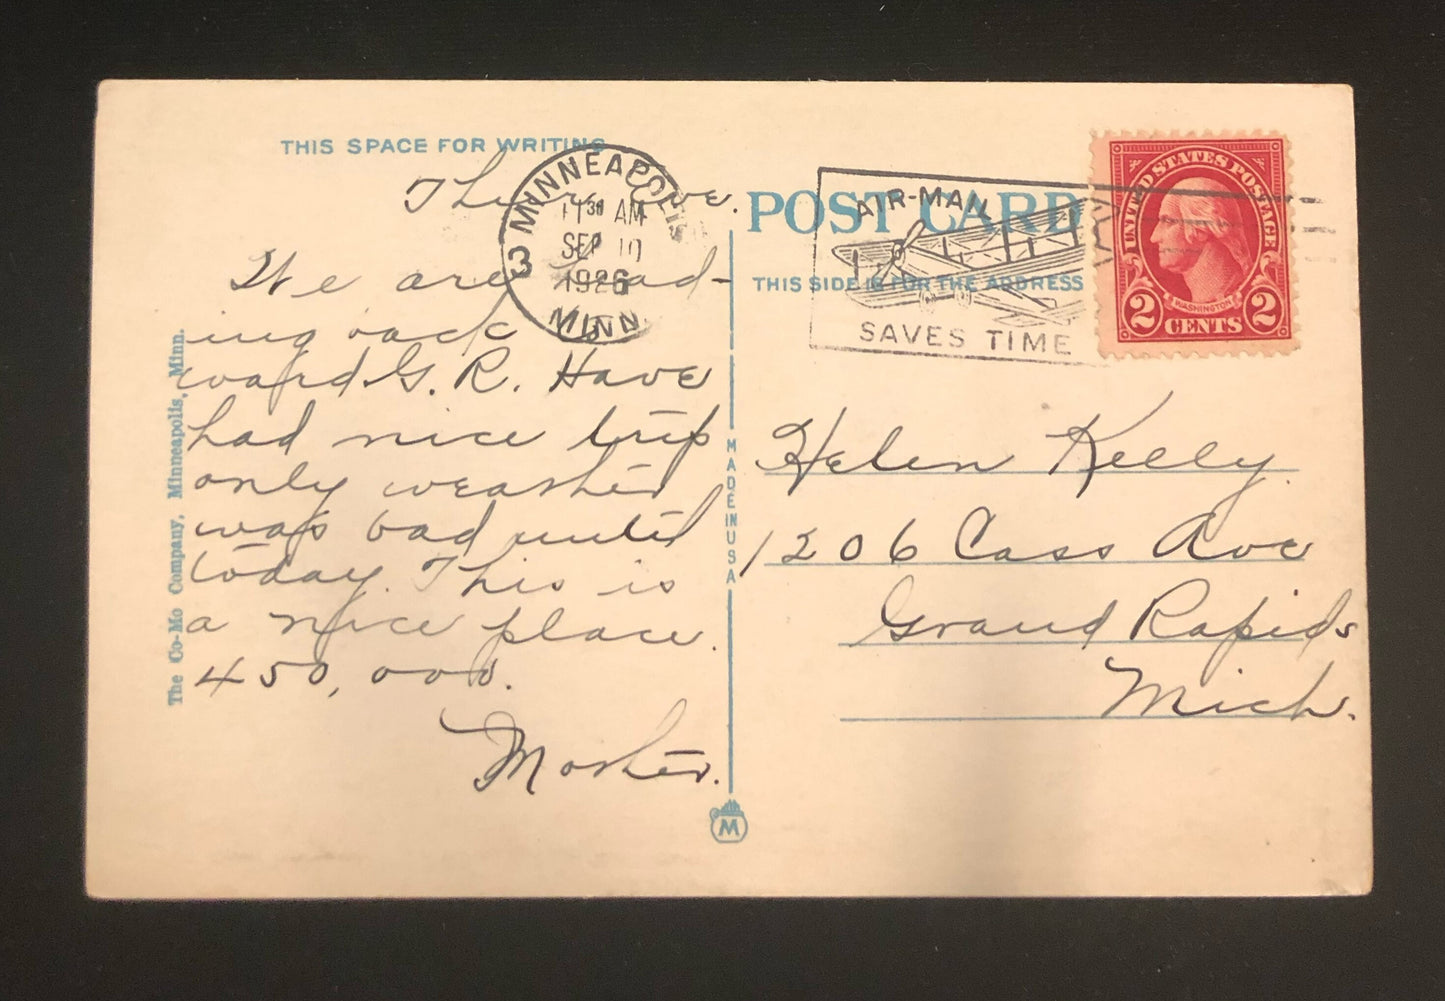 THIS SPACE FOR WRITING
Thu Eve.
We are head-
ing back to-
ward G. R. Have
had nice trip
only weather
was bad until
today. This is
a nice place.
450,000.
Mother.
The Co-Mo Company, Minneapolis, Minn.
MINNEAPOLIS
3
11 30 AM
SEP 10
1926
MINN.
POST CARD
THIS SIDE IS FOR THE ADDRESS
AIR-MAIL
SAVES TIME
UNITED STATES POSTAGE
WASHINGTON
2 CENTS 2
MADE IN USA
Helen Kelly
1206 Cass Ave
Grand Rapids
Mich.
M